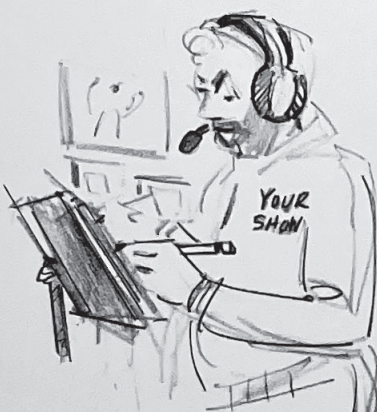 YOUR
SHOW